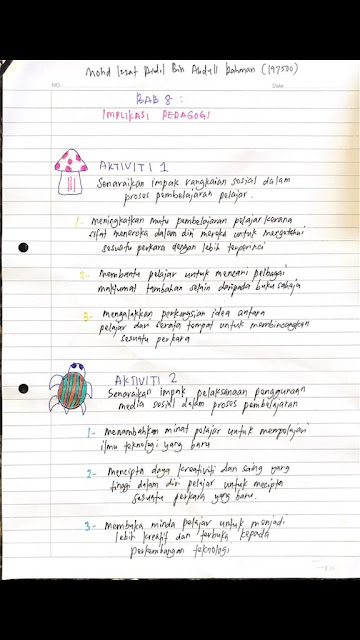 Mohd Izzat Aidil Bin Abdull Rahman (197500)
NO:
Date:
BAB 8 :
IMPLIKASI PEDAGOGI
AKTIVITI 1
Senaraikan impak rangkaian sosial dalam
proses pembelajaran pelajar.
1- meningkatkan mutu pembelajaran pelajar kerana
sifat meneroka dalam diri mereka untuk mengetahui
sesuatu perkara dengan lebih terperinci
2- membantu pelajar untuk mencari pelbagai
maklumat tambahan selain daripada buku sahaja
3- mengalakkan perkongsian idea antara
pelajar dan serata tempat untuk membincangkan
sesuatu perkara
AKTIVITI 2
Senaraikan impak pelaksanaan penggunaan
media sosial dalam proses pembelajaran
1- menambahkan minat pelajar untuk mempelajari
ilmu teknologi yang baru
2- mencipta daya kreativiti dan saing yang
tinggi dalam diri pelajar untuk mecipta
sesuatu perkara yang baru.
3- membuka minda pelajar untuk menjadi
lebih kreatif dan terbuka kepada
perkembangan teknologi